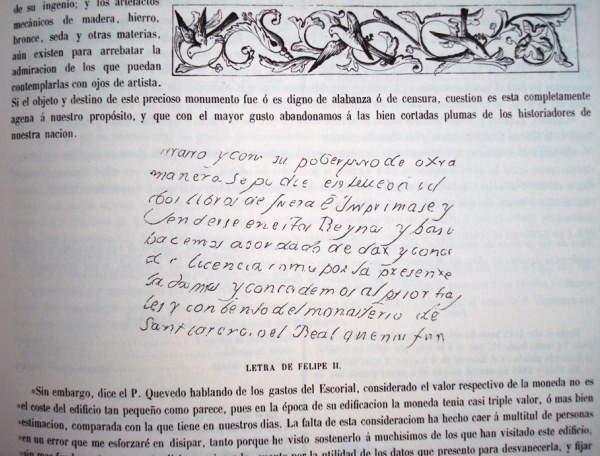 de su ingenio; y los artefactos
mecánicos de madera, hierro,
bronce, seda y otras materias,
aún existen para arrebatar la
admiracion de los que puedan
contemplarlas con ojos de artista.
Si el objeto y destino de este precioso monumento fue ó es digno de alabanza ó de censura, cuestion es esta completamente
agena á nuestro propósito, y que con el mayor gusto abandonamos á las bien cortadas plumas de los historiadores de
nuestra nacion.
y con su de otra
manera se
libros de fuera é Imprimase y
Venderse en estos Reynos y
hacemos acordado de dar y
licencia como por la presente
y concedemos al prior
y convento del monasterio de
Sant el Real que
LETRA DE FELIPE II.
«Sin embargo, dice el P. Quevedo hablando de los gastos del Escorial, considerado el valor respectivo de la moneda no es
«el coste del edificio tan pequeño como parece, pues en la época de su edificacion la moneda tenia casi triple valor, ó mas bien
«estimacion, comparada con la que tiene en nuestros dias. La falta de esta consideraciom ha hecho caer á multitul de personas
«en un error que me esforzaré en disipar, tanto porque he visto sostenerlo á muchisimos de los que han visitado este edificio,
por la utilidad de los datos que presento para desvanecerla, y fijar